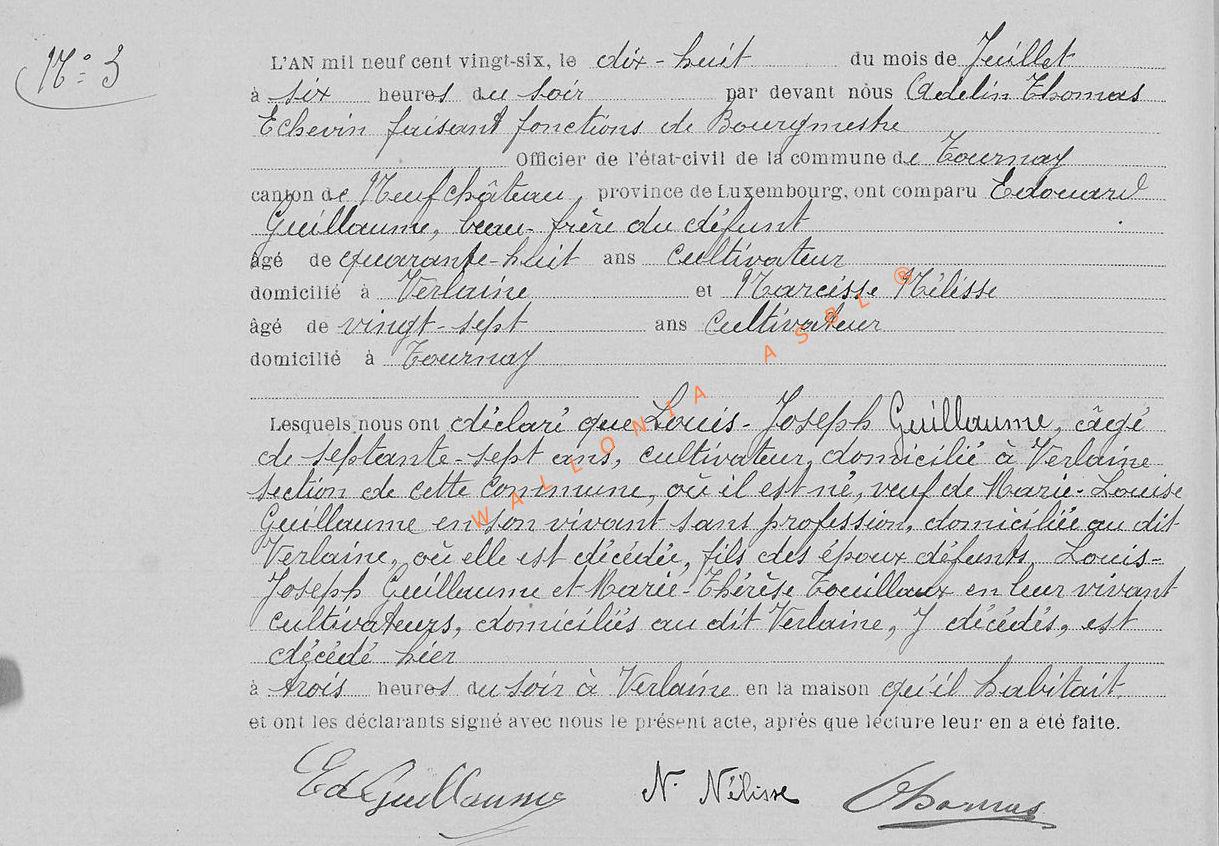 N° 3
L'AN mil neuf cent vingt-six, le dix-huit du mois de Juillet
à six heures du soir par devant nous Adelin Thomas
Echevin faisant fonctions de Bourgmestre
Officier de l'état-civil de la commune de Tournay
canton de Neufchâteau, province de Luxembourg, ont comparu Edouard
Guillaume, beau-frère du défunt
âgé de quarante-huit ans cultivateur
domicilié à Verlaine et Narcisse Nélisse
âgé de vingt-sept ans cultivateur
domicilié à Tournay
Lesquels nous ont déclaré que Louis-Joseph Guillaume, âgé
de septante-sept ans, cultivateur, domicilié à Verlaine
section de cette commune, où il est né, veuf de Marie-Louise
Guillaume en son vivant sans profession, domiciliée au dit
Verlaine, où elle est décédée, fils des époux défunts, Louis-
Joseph Guillaume et Marie-Thérèse Touillaux en leur vivant
cultivateurs, domiciliés au dit Verlaine, y décédés, est
décédé hier
à trois heures du soir à Verlaine en la maison qu'il habitait
et ont les déclarants signé avec nous le présent acte, après que lecture leur en a été faite.
Ed Guillaume N. Nélisse Thomas
WALLONIA ASBL ®